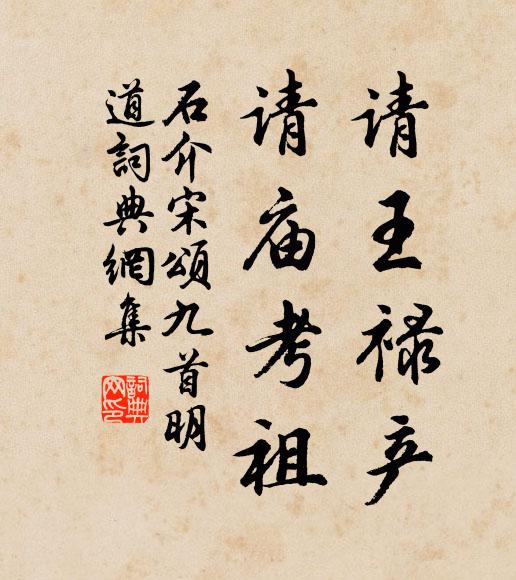 请王禄产
请庙考祖
石介宋頌九首明
道詞典網集
詞典
网印